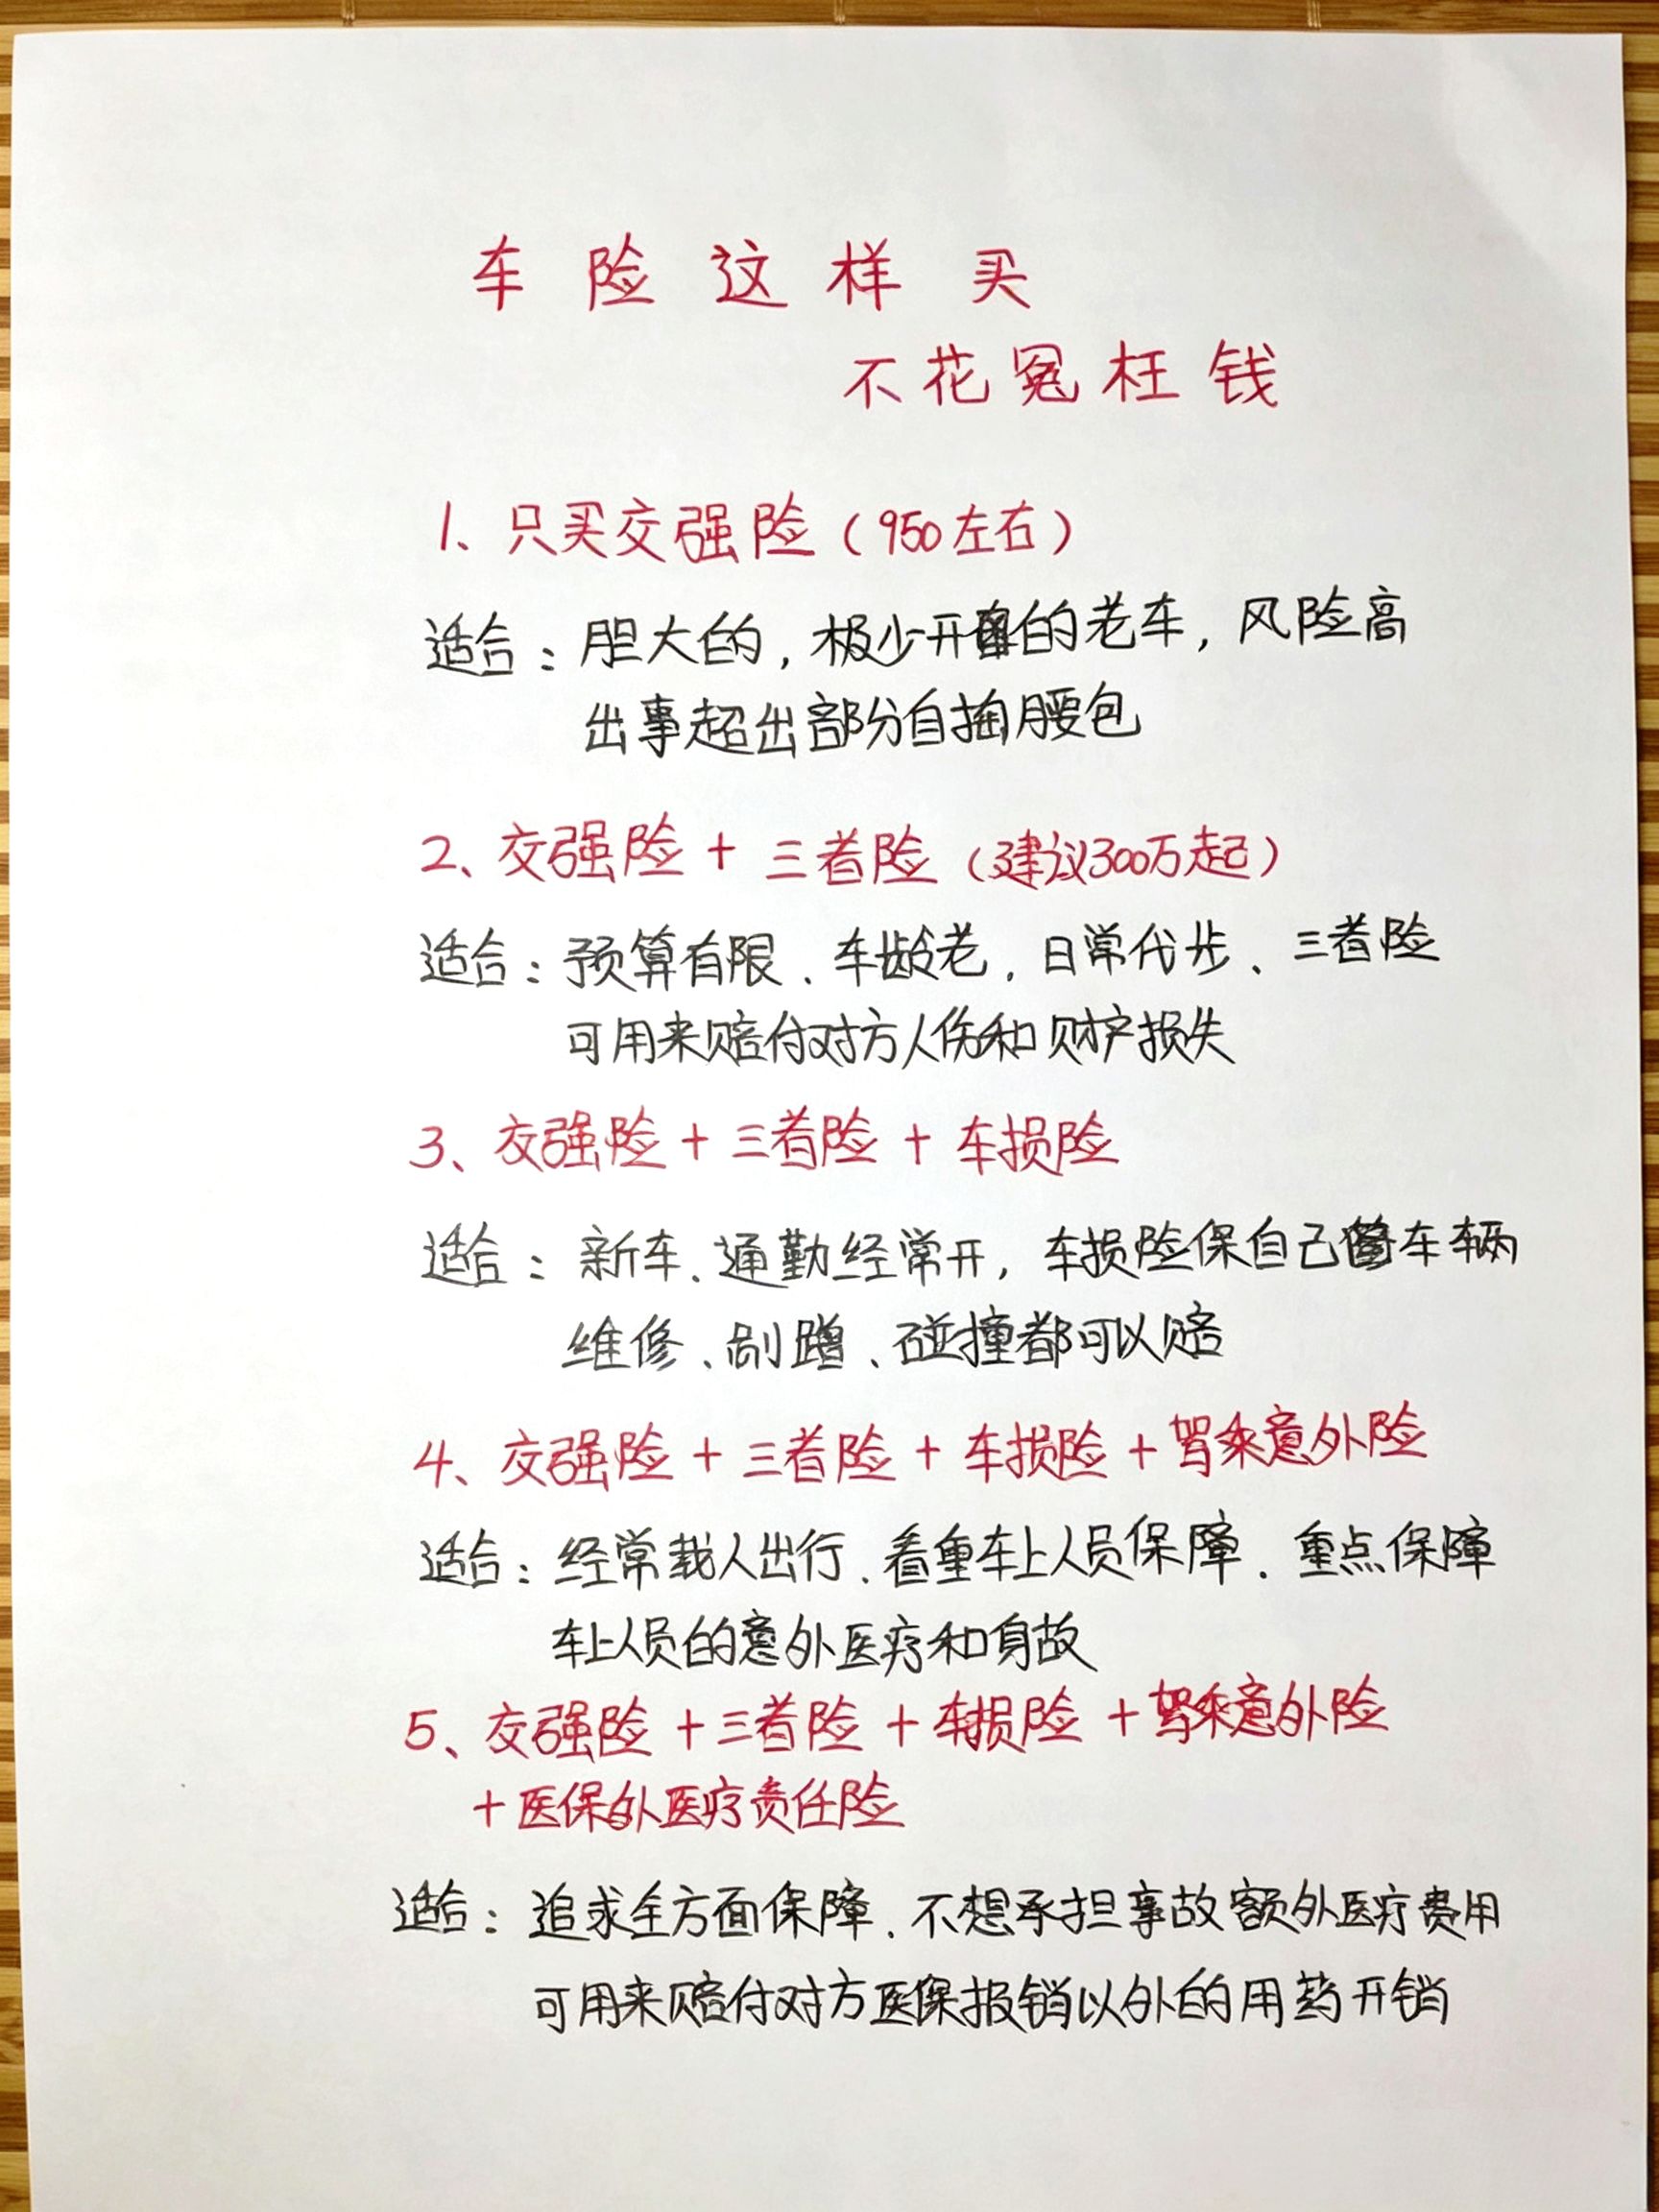 车险这样买
不花冤枉钱
1、只买交强险(950左右)
适合:胆大的,极少开的老车,风险高
出事超出部分自掏腰包
2、交强险+三者险(建议300万起)
适合:预算有限、车龄老,日常代步、三者险
可用来赔付对方人伤和财产损失
3、交强险+三者险+车损险
适合:新车、通勤经常开,车损险保自己车辆
维修、剐蹭、碰撞都可以赔
4、交强险+三者险+车损险+驾乘意外险
适合:经常载人出行、看重车上人员保障.重点保障
车上人员的意外医疗和身故
5、交强险+三者险+车损险+驾乘意外险
+医保外医疗责任险
适合:追求全方面保障、不想承担事故额外医疗费用
可用来赔付对方医保报销以外的用药开销